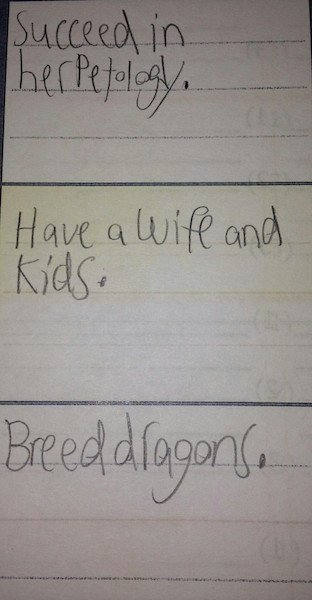 Succeed in
herpetology.
Have a wife and
kids.
Breed dragons.